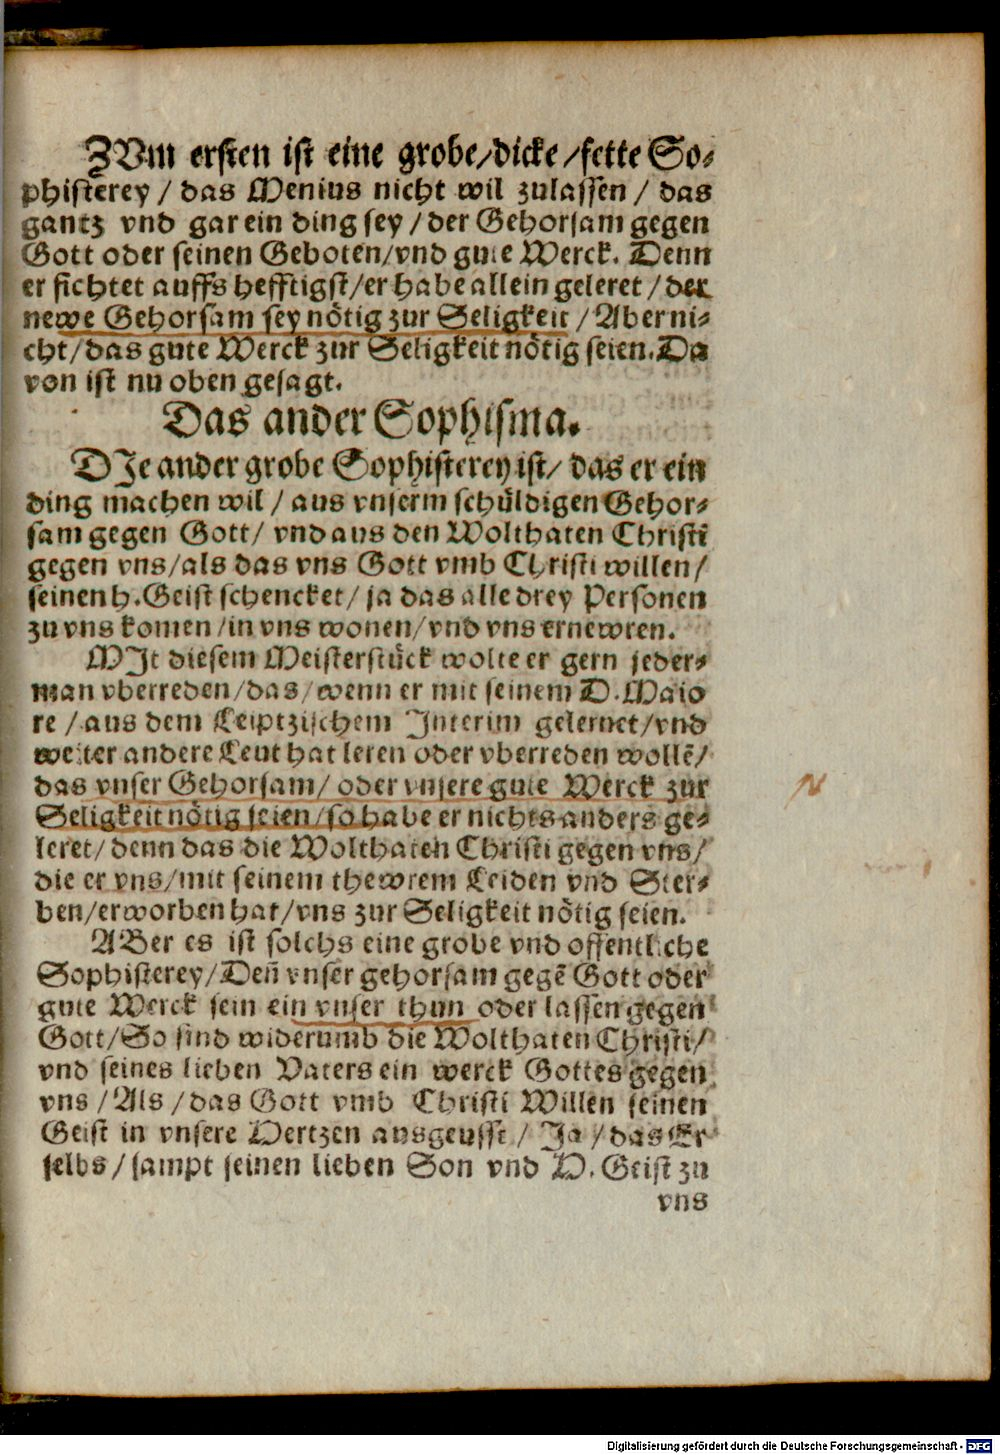 ZVm ersten ist eine grobe/dicke/fette So⸗
phisterey / das Menius nicht wil zulassen / das
gantz vnd gar ein ding sey / der Gehorsam gegen
Gott oder seinen Geboten/vnd gute Werck. Denn
er fichtet auffs hefftigst/er habe allein geleret / der
newe Gehorsam sey nötig zur Seligkeit / Aber ni⸗
cht/das gute Werck zur Seligkeit nötig seien. Da
von ist nu oben gesagt.
Das ander Sophisma.
DIe ander grobe Sophisterey ist/ das er ein
ding machen wil / aus vnserm schüldigen Gehor⸗
sam gegen Gott/ vnd aus den Wolthaten Christi
gegen vns/als das vns Gott vmb Christi willen/
seinen h.Geist schencket/ ja das alle drey Personen
zu vns komen/in vns wonen/vnd vns ernewren.
MIt diesem Meisterstück wolte er gern jeder⸗
man vberreden/das/wenn er mit seinem D.Maio
re / aus dem Leiptzischem Interim gelernet/vnd
weiter andere Leut hat leren oder vberreden wollē/
das vnser Gehorsam/ oder vnsere gute Werck zur
Seligkeit nötig seien/so habe er nichts anders ge⸗
leret/ denn das die Wolthaten Christi gegen vns/
die er vns/mit seinem thewrem Leiden vnd Ster⸗
ben/erworben hat/vns zur Seligkeit nötig seien.
ABer es ist solchs eine grobe vnd offentliche
Sophisterey/Deñ vnser gehorsam gegē Gott oder
gute Werck sein ein vnser thun oder lassen gegen
Gott/So sind widerumb die Wolthaten Christi/
vnd seines lieben Vaters ein werck Gottes gegen
vns / Als / das Gott vmb Christi Willen seinen
Geist in vnsere Hertzen ausgeusst / Ja / das Er
selbs / sampt seinen lieben Son vnd H. Geist zu
vns
Digitalisierung gefördert durch die Deutsche Forschungsgemeinschaft - DFG